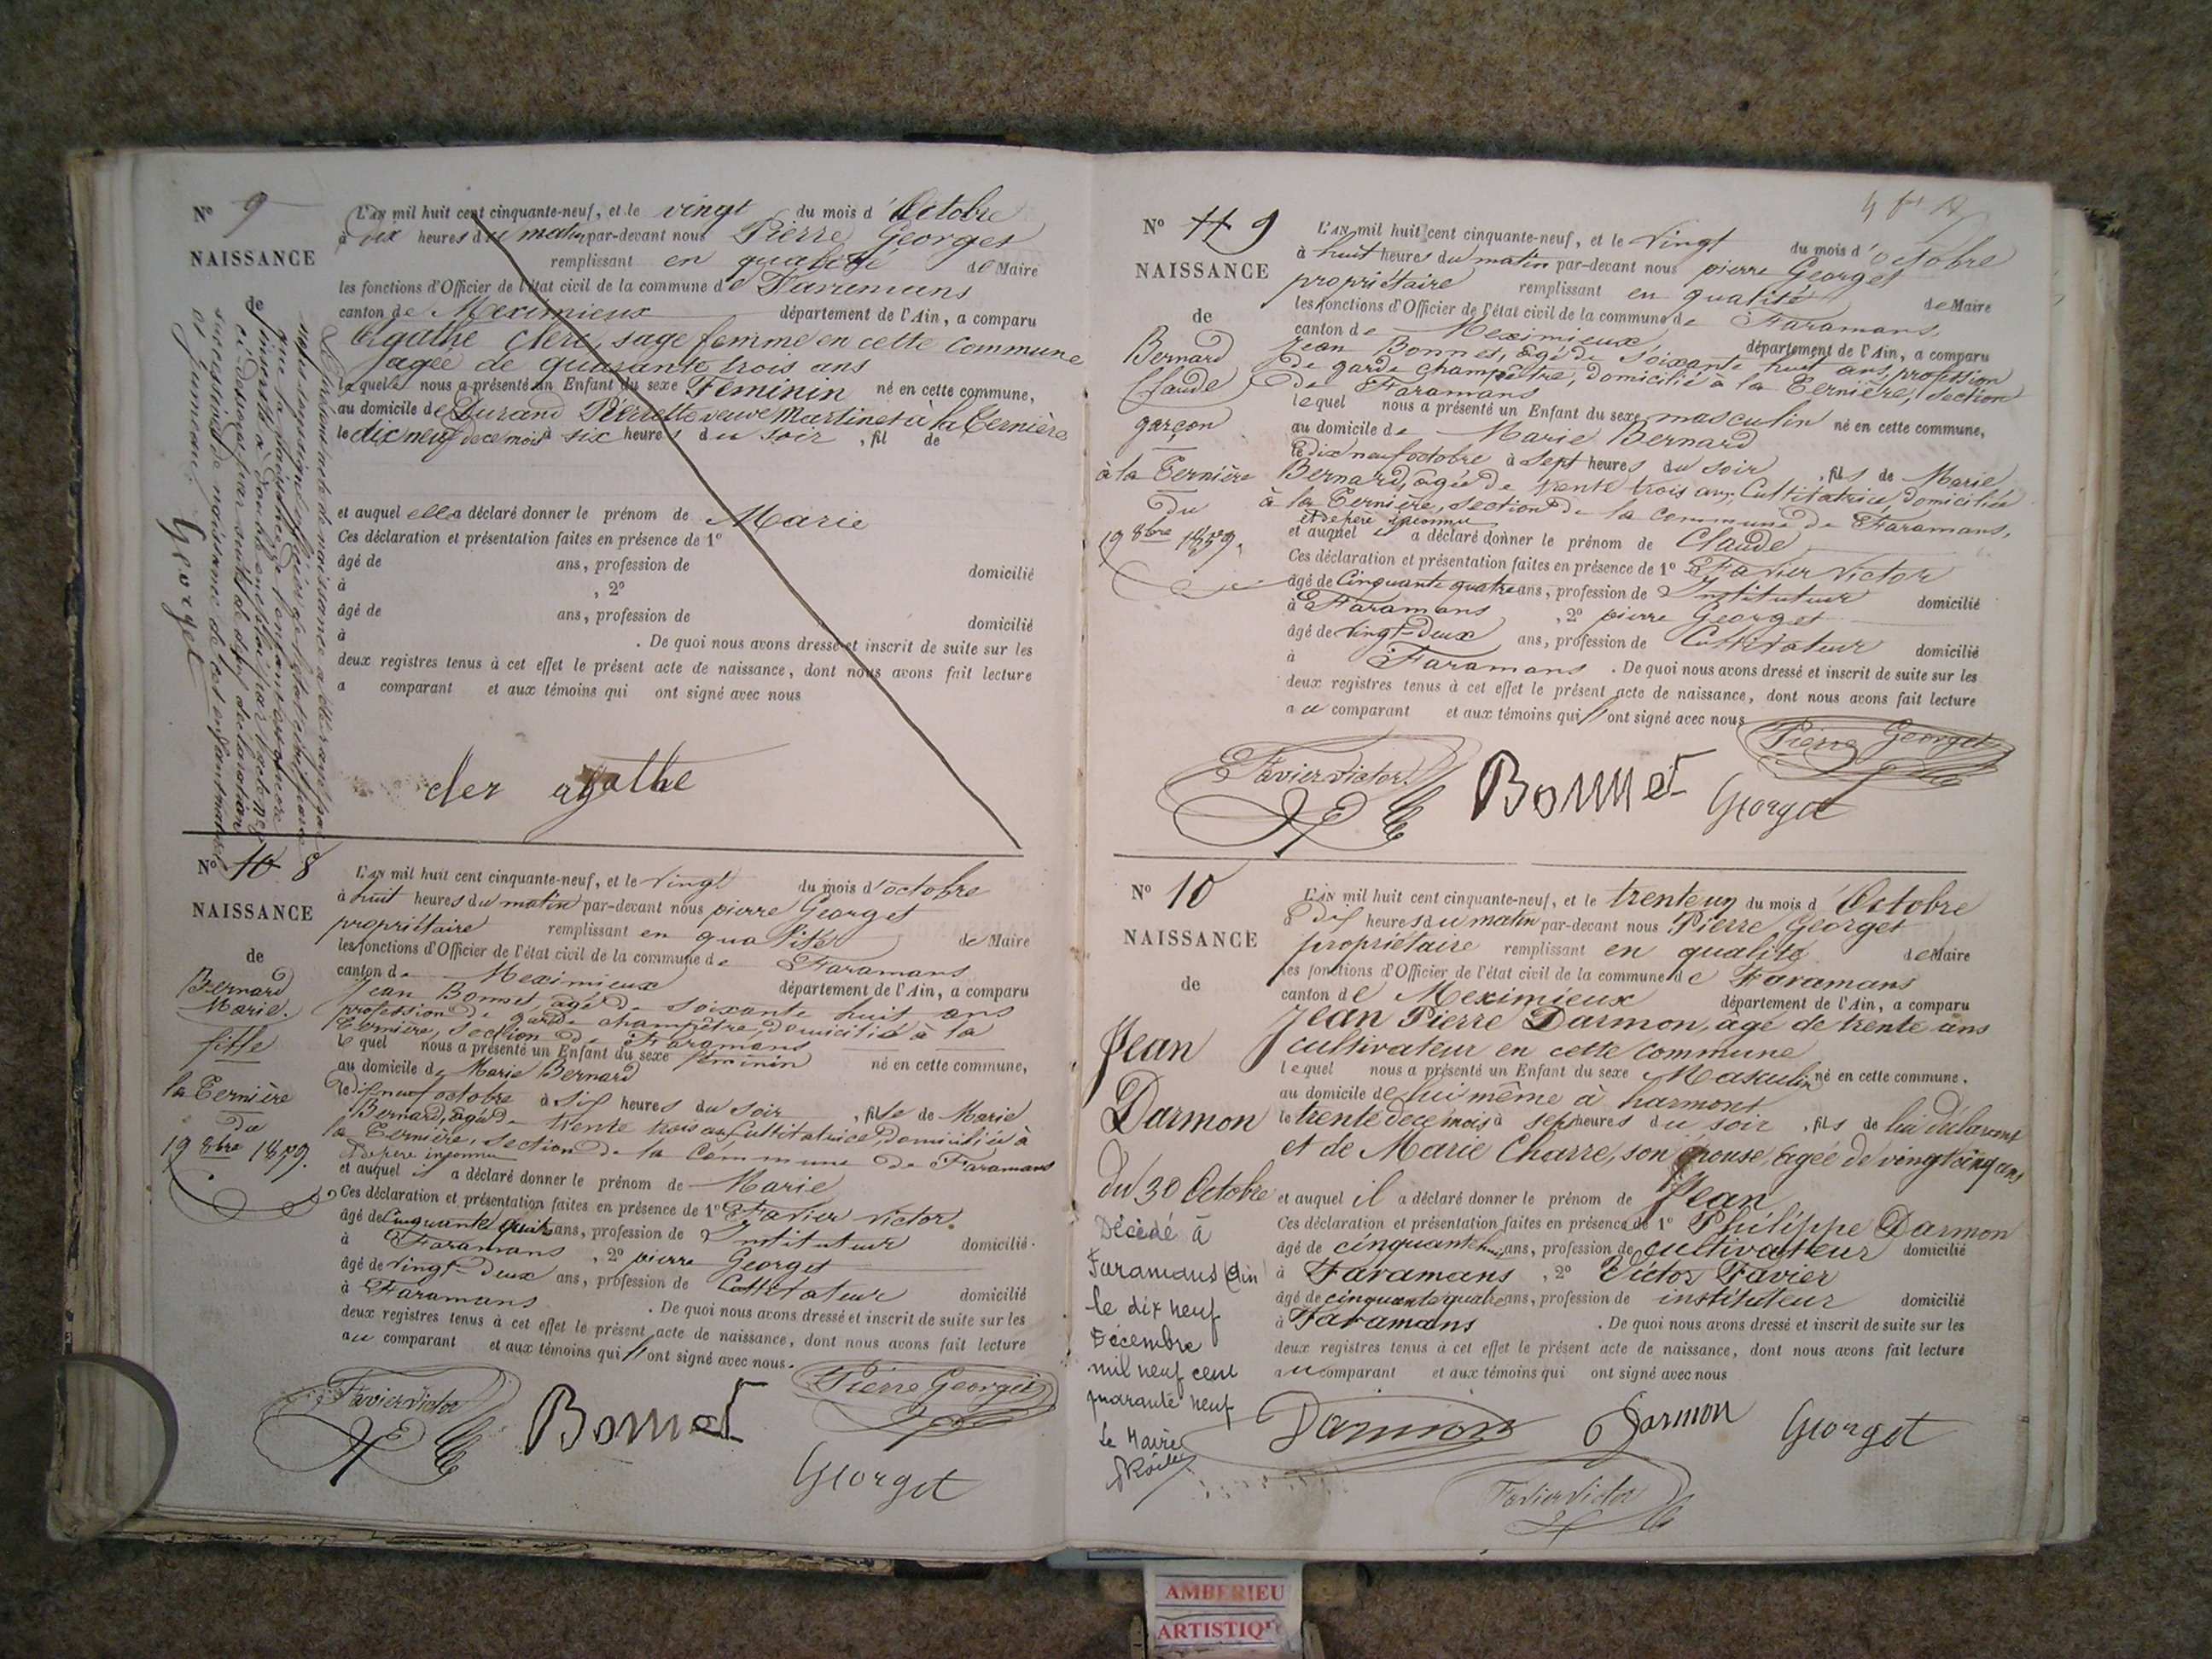 N° 9
NAISSANCE
de
L'AN mil huit cent cinquante-neuf, et le vingt du mois d'Octobre
à dix heures du matin par-devant nous Pierre Georget
remplissant en qualité de Maire
les fonctions d'Officier de l'état civil de la commune de Faramans
canton de Meximieux département de l'Ain, a comparu
Agathe Clerc, sage femme en cette commune
agée de quarante trois ans
laquelle nous a présenté un Enfant du sexe Féminin né en cette commune,
au domicile de Durand Pierrette veuve Martinet à la Cernière
le dix neuf de ce mois à six heures du soir, fil de
et auquel elle a déclaré donner le prénom de Marie
Ces déclaration et présentation faites en présence de 1°
âgé de ans, profession de domicilié
à , 2°
âgé de ans, profession de domicilié
à . De quoi nous avons dressé et inscrit de suite sur les
deux registres tenus à cet effet le présent acte de naissance, dont nous avons fait lecture
a comparant et aux témoins qui ont signé avec nous
cler agathe
Georget
N° 10 8
NAISSANCE
de
Bernard
Marie.
fille
la Cernière
Du
19 8bre 1859.
L'AN mil huit cent cinquante-neuf, et le vingt du mois d'octobre
à huit heures du matin par-devant nous pierre Georget
propriétaire remplissant en qualité de Maire
les fonctions d'Officier de l'état civil de la commune de Faramans
canton de Meximieux département de l'Ain, a comparu
Jean Bonnet, agé de soixante huit ans
profession de garde champêtre, domicilié à la
Cernière, section de Faramans
lequel nous a présenté un Enfant du sexe féminin né en cette commune,
au domicile de Marie Bernard
le dix neuf octobre à six heures du soir, fille de Marie
Bernard, agée de trente trois ans Cultivatrice, domiciliée à
la Cernière, section de la Commune de Faramans
et de père inconnu
et auquel il a déclaré donner le prénom de Marie
Ces déclaration et présentation faites en présence de 1° Favier Victor.
âgé de Cinquante quatre ans, profession de Instituteur domicilié.
à Faramans , 2° pierre Georget
âgé de vingt-deux ans, profession de Cultivateur domicilié
à Faramans . De quoi nous avons dressé et inscrit de suite sur les
deux registres tenus à cet effet le présent acte de naissance, dont nous avons fait lecture
au comparant et aux témoins qui ont signé avec nous.
Favier Victor Bonnet Pierre Georget
Georget
N° 11 9
NAISSANCE
de
Bernard
Claude
garçon
à la Cernière
Du
19 8bre 1859.
L'AN mil huit cent cinquante-neuf, et le vingt du mois d'octobre
à huit heures du matin par-devant nous pierre Georget
propriétaire remplissant en qualité de Maire
les fonctions d'Officier de l'état civil de la commune de Faramans,
canton de Meximieux, département de l'Ain, a comparu
Jean Bonnet, agé de soixante huit ans, profession
de garde champêtre, domicilié à la Cernière, section
de Faramans
lequel nous a présenté un Enfant du sexe masculin né en cette commune,
au domicile de Marie Bernard
le dix neuf octobre à sept heures du soir, fils de Marie
Bernard, agée de trente trois ans, Cultivatrice, domiciliée
à la Cernière, section de la Commune de Faramans,
et de père inconnu
et auquel il a déclaré donner le prénom de Claude
Ces déclaration et présentation faites en présence de 1° Favier Victor
âgé de Cinquante quatre ans, profession de Instituteur domicilié
à Faramans , 2° pierre Georget
âgé de vingt-deux ans, profession de Cultivateur domicilié
à Faramans . De quoi nous avons dressé et inscrit de suite sur les
deux registres tenus à cet effet le présent acte de naissance, dont nous avons fait lecture
au comparant et aux témoins qui ont signé avec nous
Favier Victor. Bonnet Georget Pierre Georget
N° 10
NAISSANCE
de
Jean
Darmon
du 30 Octobre
Décédé à
Faramans (Ain
le dix neuf
Décembre
mil neuf cent
quarante neuf
Le Maire
L'AN mil huit cent cinquante-neuf, et le trente un du mois d'Octobre
à dix heures du matin par-devant nous Pierre Georget
propriétaire remplissant en qualité de Maire
les fonctions d'Officier de l'état civil de la commune de Faramans
canton de Meximieux département de l'Ain, a comparu
Jean Pierre Darmon, agé de trente ans
cultivateur en cette commune
lequel nous a présenté un Enfant du sexe Masculin né en cette commune.
au domicile de lui même à harmont
le trente de ce mois à sept heures du soir, fils de lui déclarant
et de Marie Charre, son épouse, agée de vingt cinq ans
et auquel il a déclaré donner le prénom de Jean
Ces déclaration et présentation faites en présence de 1° Philippe Darmon
âgé de cinquante huit ans, profession de cultivateur domicilié
à Faramans , 2° Victor Favier
âgé de cinquante quatre ans, profession de instituteur domicilié
à Faramans . De quoi nous avons dressé et inscrit de suite sur les
deux registres tenus à cet effet le présent acte de naissance, dont nous avons fait lecture
au comparant et aux témoins qui ont signé avec nous
Darmon Darmon Georget
Favier Victor
AMBERIEU
ARTISTIQU